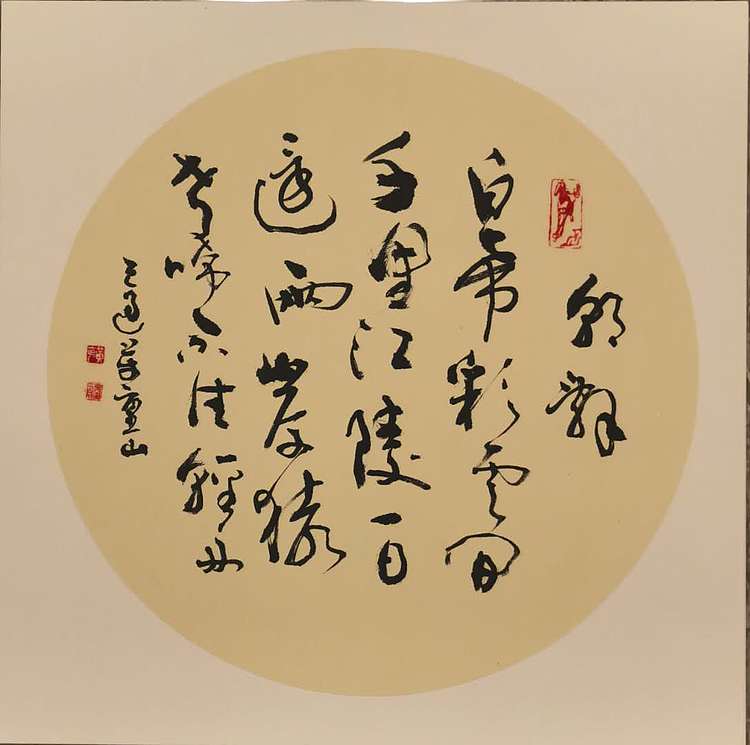 朝辭
白帝彩云間
千里江陵一日
還兩岸猿
聲啼不住輕舟
已過萬重山